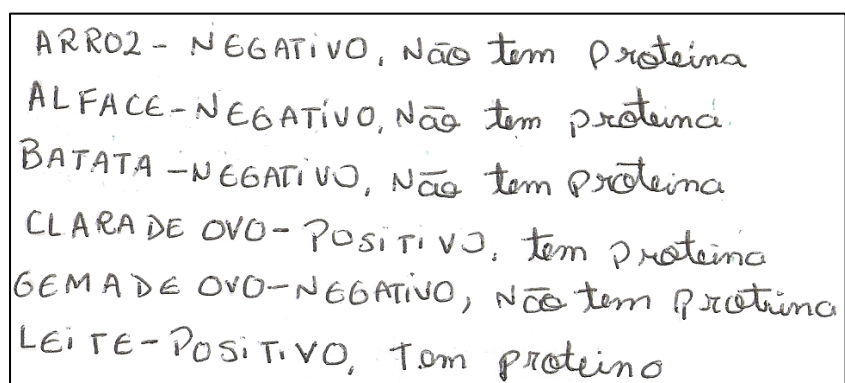 ARROZ - NEGATIVO, Não tem proteina
ALFACE - NEGATIVO, Não tem proteina.
BATATA - NEGATIVO, Não tem proteina
CLARA DE OVO - POSITIVO, tem proteina
GEMA DE OVO - NEGATIVO, Não tem protrina
LEiTE - POSiTiVO, Tem proteino